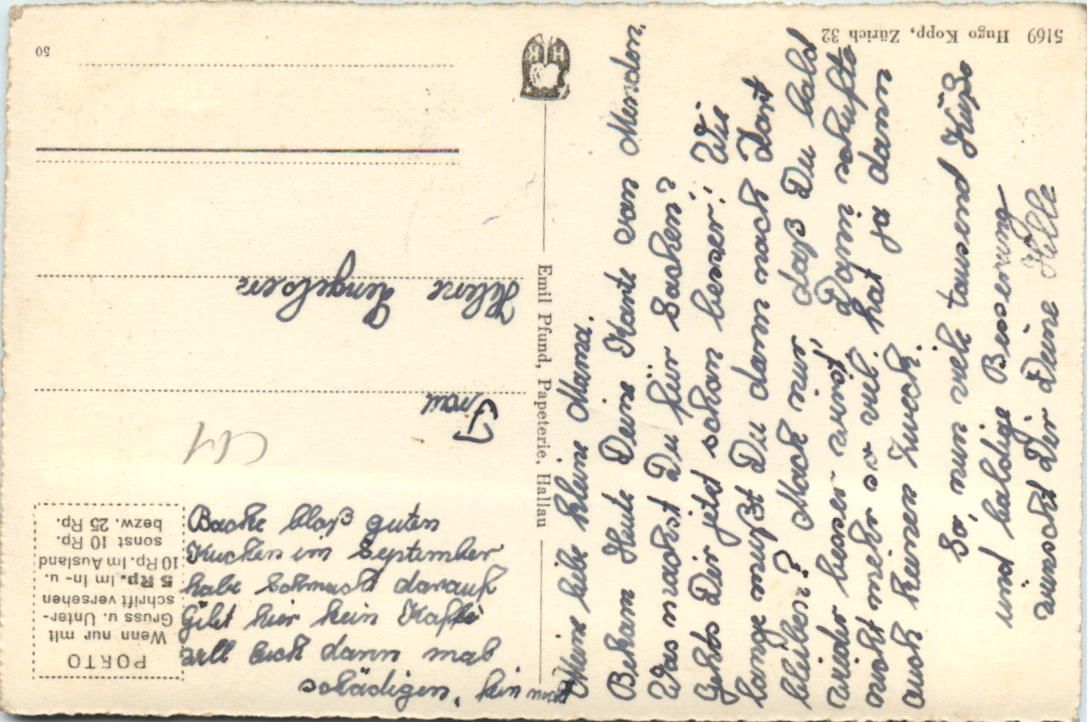 5169 Hugo Kopp, Zürich 32
50
Emil Pfund, Papeterie, Hallau
PORTO
Wenn nur mit
Gruss u. Unter-
schrift versehen
5 Rp. im In- u.
10 Rp. im Ausland
sonst 10 Rp.
bezw. 25 Rp.
Frau
Helene Lengelsen
Meine liebe kleine Mama.
Bekam Heute Deine Karte von Menden.
Was machst Du für Sachen?
Gehts Dir jetzt schon besser? Wie
lange mußt Du dann noch Dort
bleiben? Mach nur, daß Du bald
wieder besser wirst, Dann schufte
nicht mehr so viel. hat ja dann
auch keinen Zweck.
So, nun viele tausend Küße
und baldige Besserung
wünscht Dir Deine Hilde
Backe bloß guten
Kuchen im September
habe Schmacht darauf
Gibt hier kein Kaffe
will Euch dann mal
schädigen.